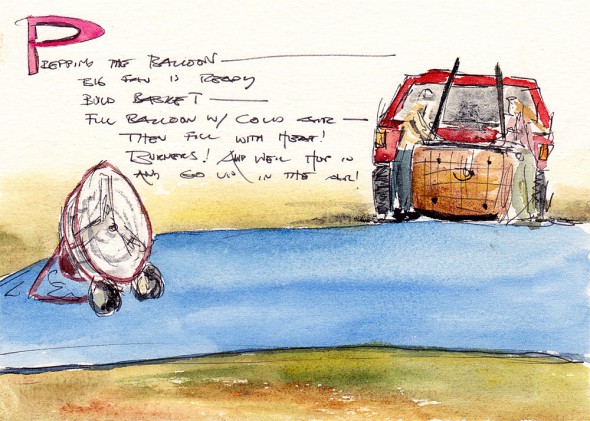 PREPPING THE BALLOON
BIG FAN IS READY
BUILD BASKET
FILL BALLOON W/ COLD AIR
THEN FILL WITH HEAT!
BURNERS! AND WE'LL HOP IN
AND GO UP IN THE AIR!